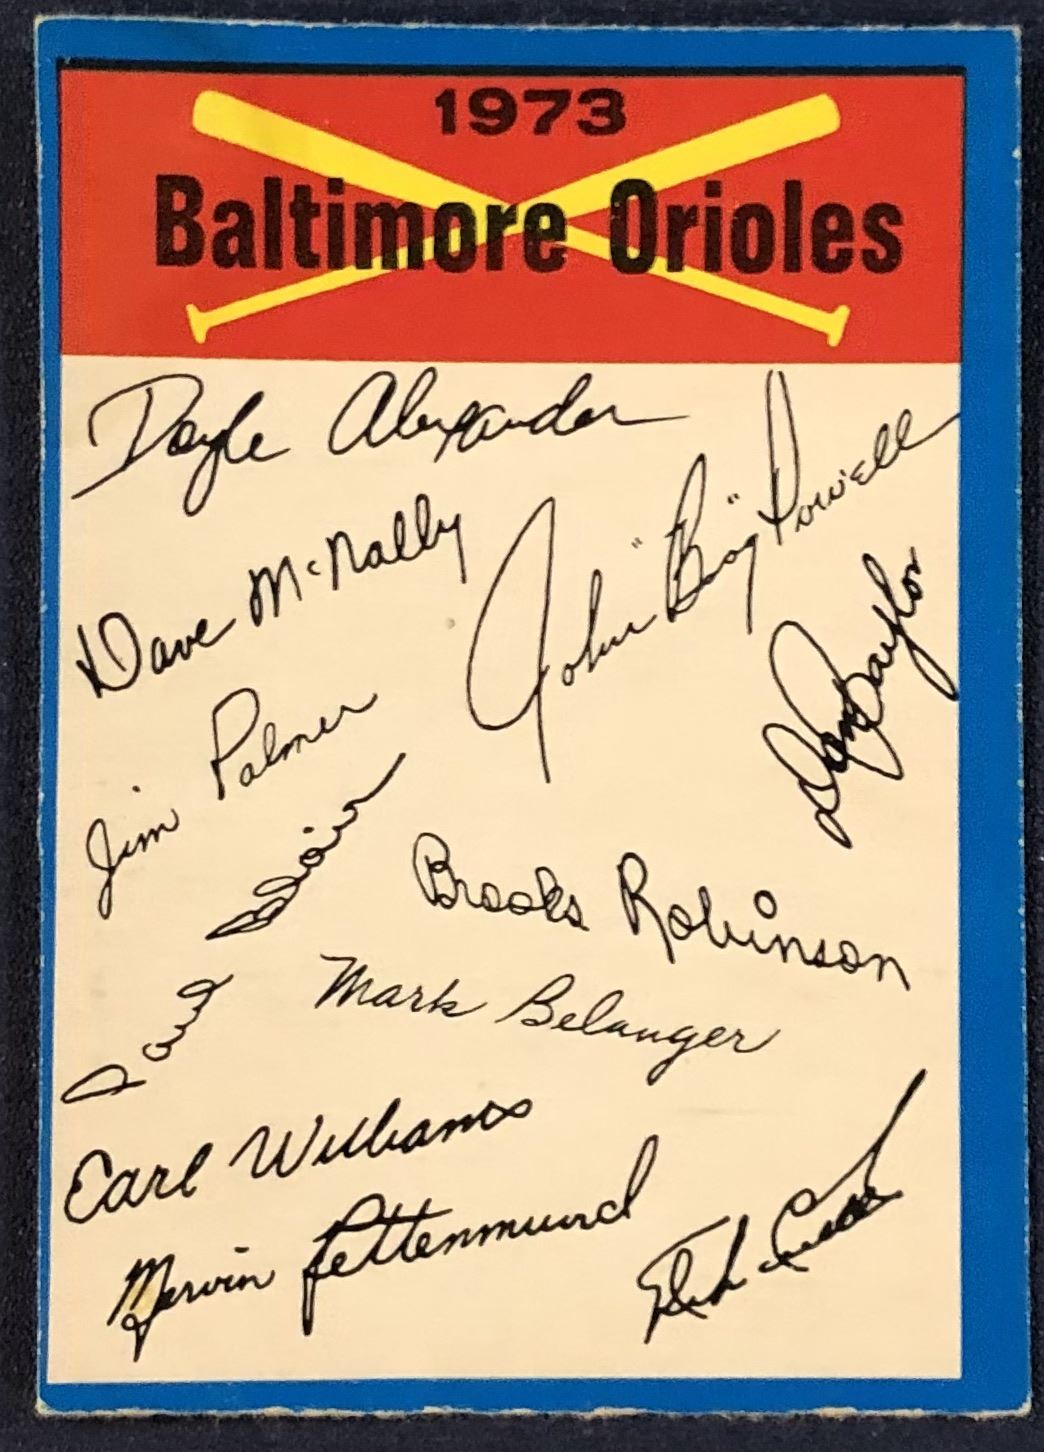 1973
Baltimore Orioles
Doyle Alexander
John "Boog" Powell
Dave McNally
Don Baylor
Jim Palmer
Paul Blair
Brooks Robinson
Mark Belanger
Earl Williams
Mervin Rettenmund